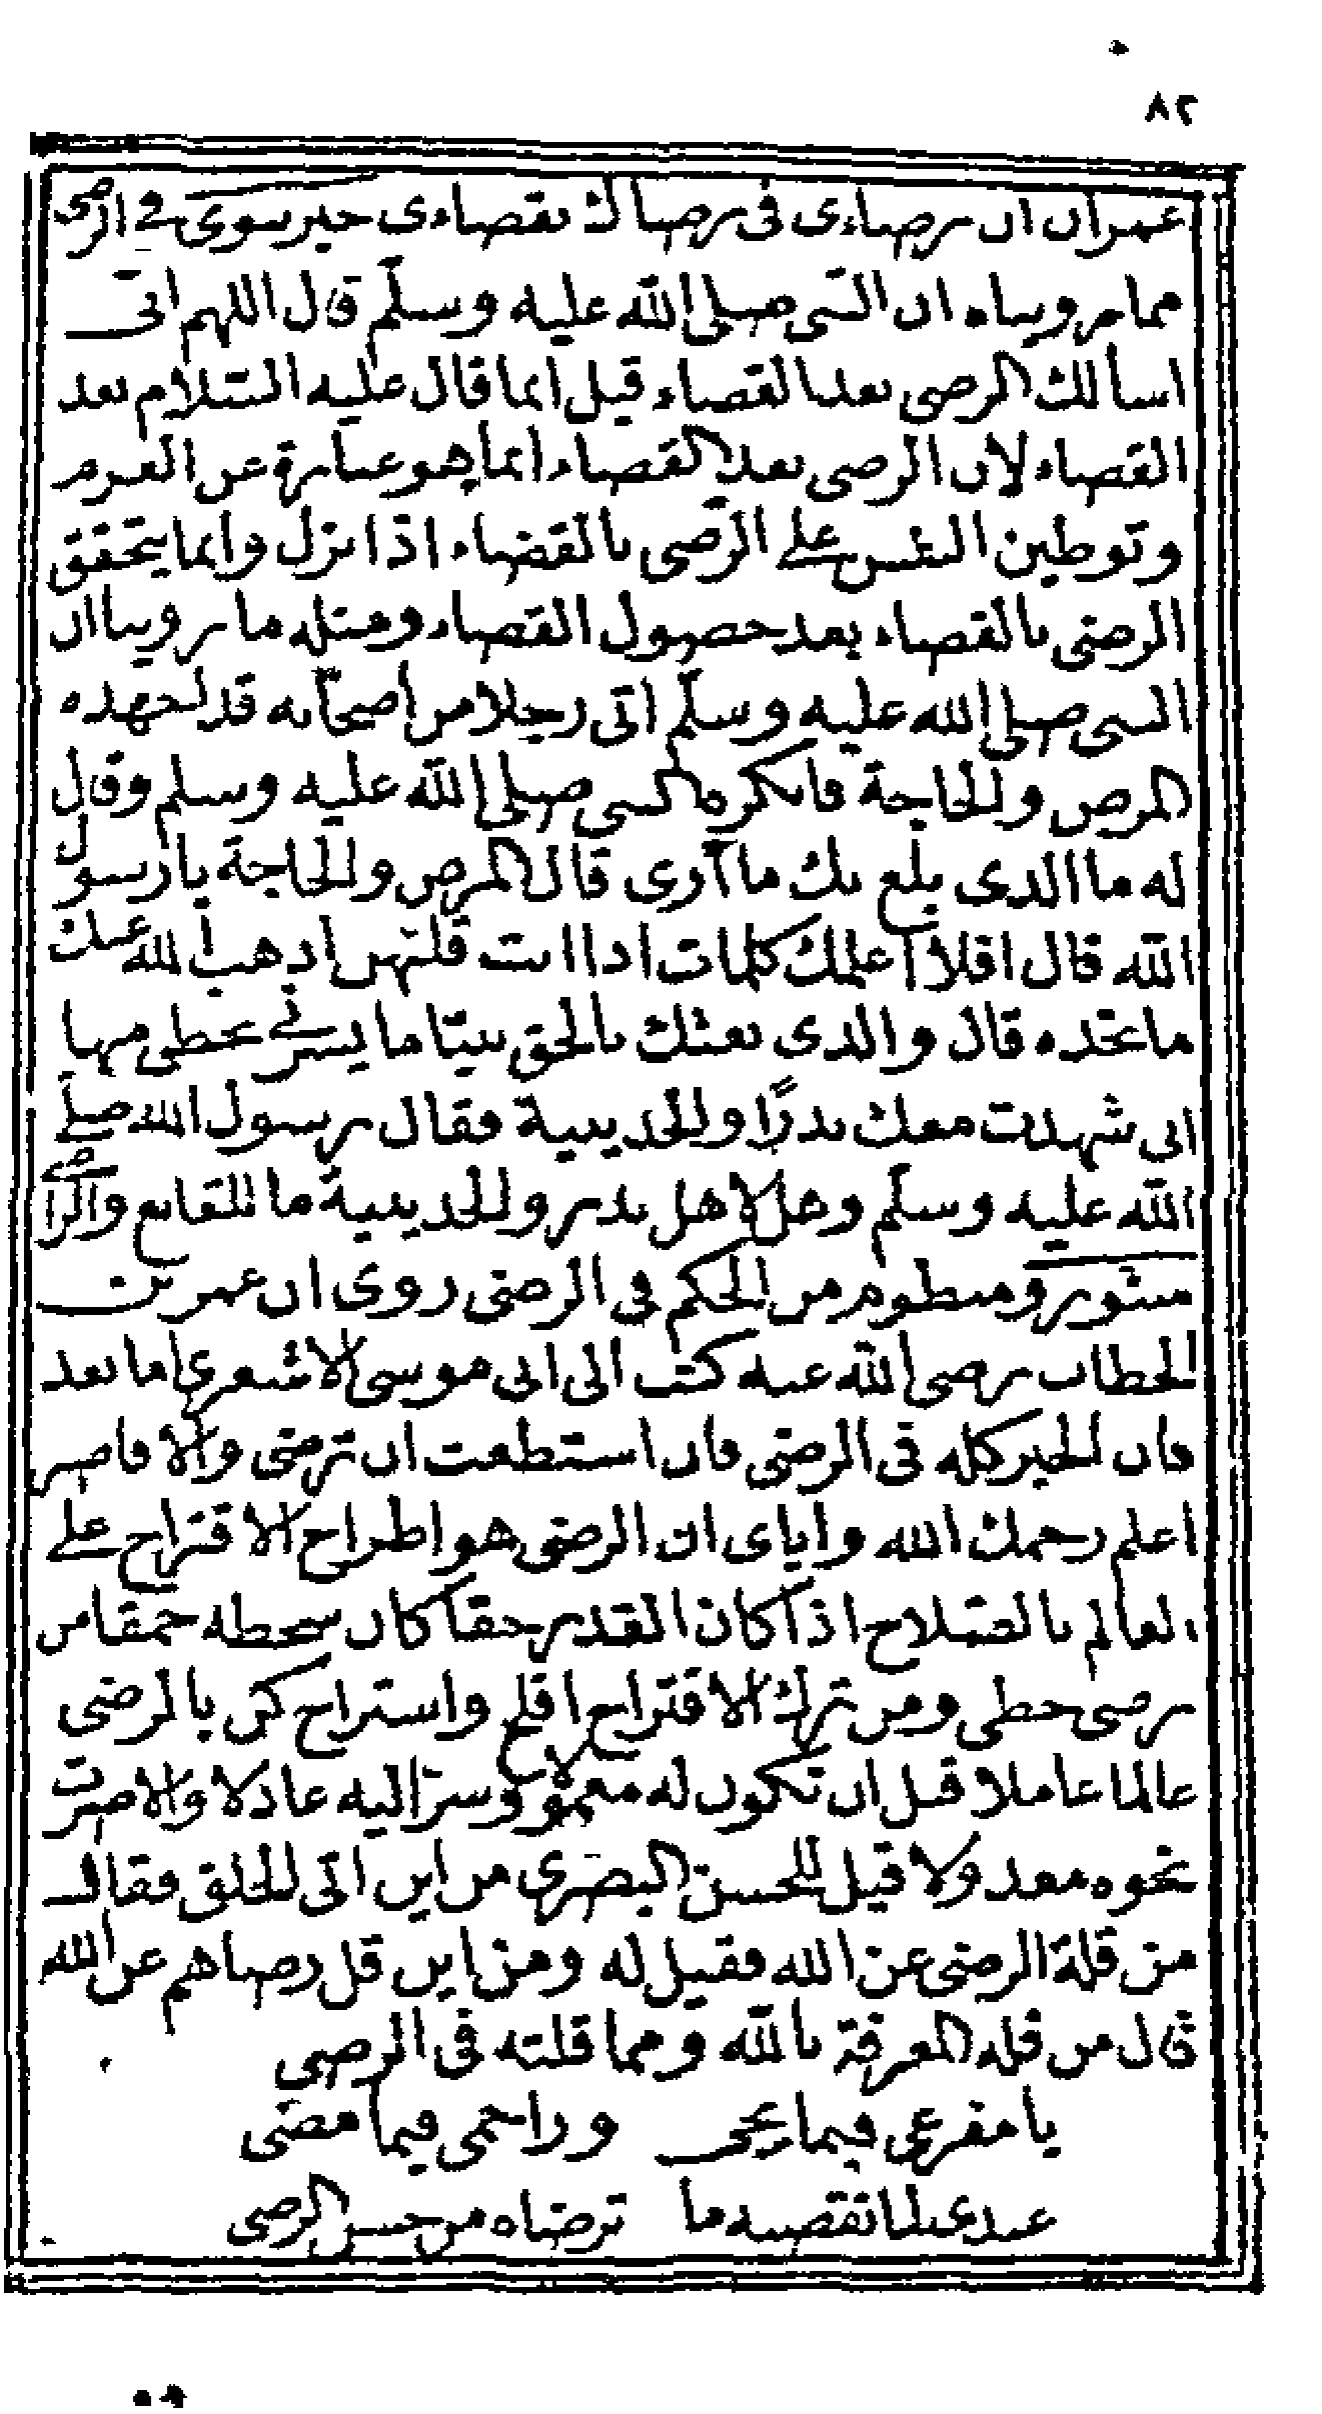 ٨٢
عمران ان رضاءى فى رضاك بقضاءى خبر نبوى فى الرضى
مما رويناه ان النبى صلى الله عليه وسلم قال اللهم انى
اسألك الرضى بعد القضاء قيل انما قال عليه السلام بعد
القضاء لان الرضى بعد القضاء انما هو عبارة عن العزم
وتوطين النفس على الرضى بالقضاء اذا نزل وانما يتحقق
الرضى بالقضاء بعد حصول القضاء ومثله ما رويناه ان
النبى صلى الله عليه وسلم اتى رجلا من اصحابه قد اجهده
المرض والحاجة فانكره النبى صلى الله عليه وسلم وقال
له ما الذى بلغ بك ما أرى قال المرض والحاجة يا رسول
الله قال افلا اعلمك كلمات اذا انت قلتهن اذهب الله عنك
ما تجده قال والذى بعثك بالحق نبيّا ما يسرنى بحظى منها
انى شهدت معك بدرًا والحديبية فقال رسول الله صلى
الله عليه وسلم وهل لاهل بدر والحديبية ما للقانع والراضى
منثور ومنظوم من الحكم فى الرضى روى ان عمر بن
الخطاب رضى الله عنه كتب الى ابى موسى الاشعرى اما بعد
فان الخير كله فى الرضى فان استطعت ان ترضى والا فاصبر
اعلم رحمك الله واياى ان الرضى هو اطراح الاقتراح على
العالم بالصلاح اذا كان القدر حقا كان سخطه حمقا من
رضى حظى ومن ترك الاقتراح افلح واستراح كن بالرضى
عالما عاملا قبل ان تكون له معمولا وسر اليه عادلا والا صرت
نحوه معدولا قيل للحسن البصرى من اين اتى الخلق فقال
من قلة الرضى عن الله فقيل له ومن اين قل رضاهم عن الله
قال من قله المعرفة بالله ومما قلته فى الرضى
يا مفزعى فيما يجى وراحمى فيما مضى
عندى لما تقضيه ما ترضاه من حسن الرضى